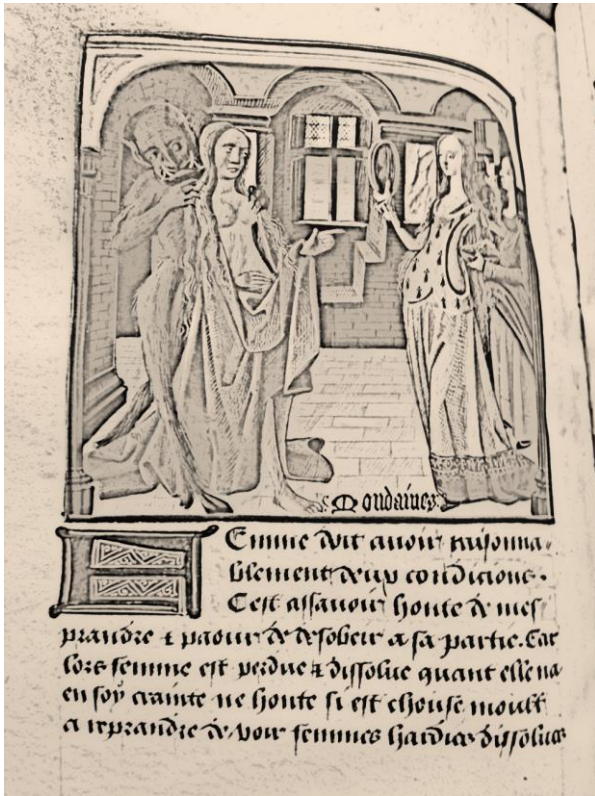 Mondaines
Emme doit avoir raisonna
blement deux condicions.
C'est assavoir honte de mes
prandre & paour de desobeir a sa partie. Car
lors femme est perdue & dissolue quant elle na
en soy crainte ne honte si est chouse moult
a reprandre de voir femmes hardies dissolues